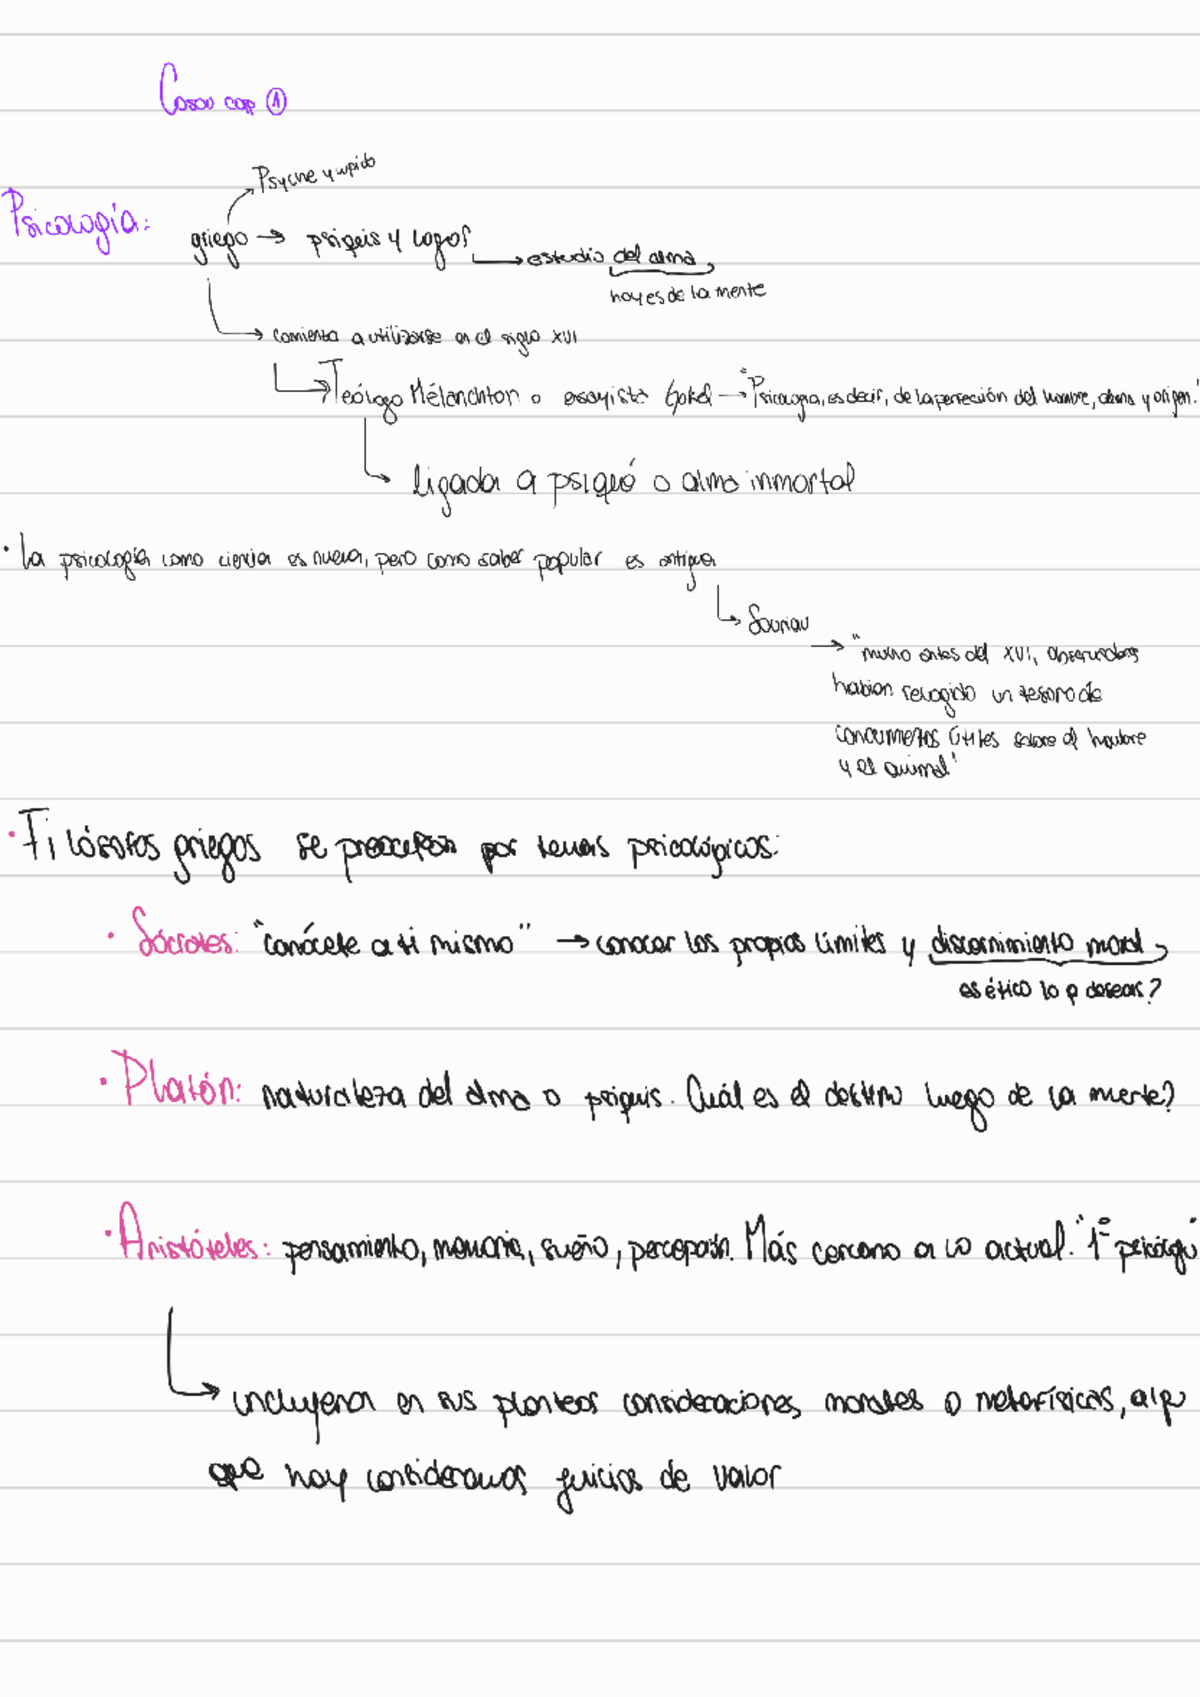 Casau cap ①
Psyche y cupido
Psicología:
griego → psiquis y logos → estudio del alma
hoy es de la mente
comienza a utilizarse en el siglo XVI
Teólogo Mélanchton o ensayista Gokel → "Psicología, es decir, de la perfección del hombre, alma y origen."
ligada a psiqué o alma inmortal
· La psicología como ciencia es nueva, pero como saber popular es antigua
Souriau
→ "mucho antes del XVI, observadores
habían recogido un tesoro de
conocimientos útiles sobre el hombre
y el animal"
· Filósofos griegos se preocupan por temas psicológicos:
· Sócrates: "conócete a ti mismo" → conocer los propios límites y discernimiento moral
es ético lo q deseas?
· Platón: naturaleza del alma o psiquis. Cuál es el destino luego de la muerte?
· Aristóteles: pensamiento, memoria, sueño, percepción. Más cercano a lo actual. "1º psicólogo"
incluyeron en sus planteos consideraciones morales o metafísicas, algo
que hoy consideramos juicios de valor